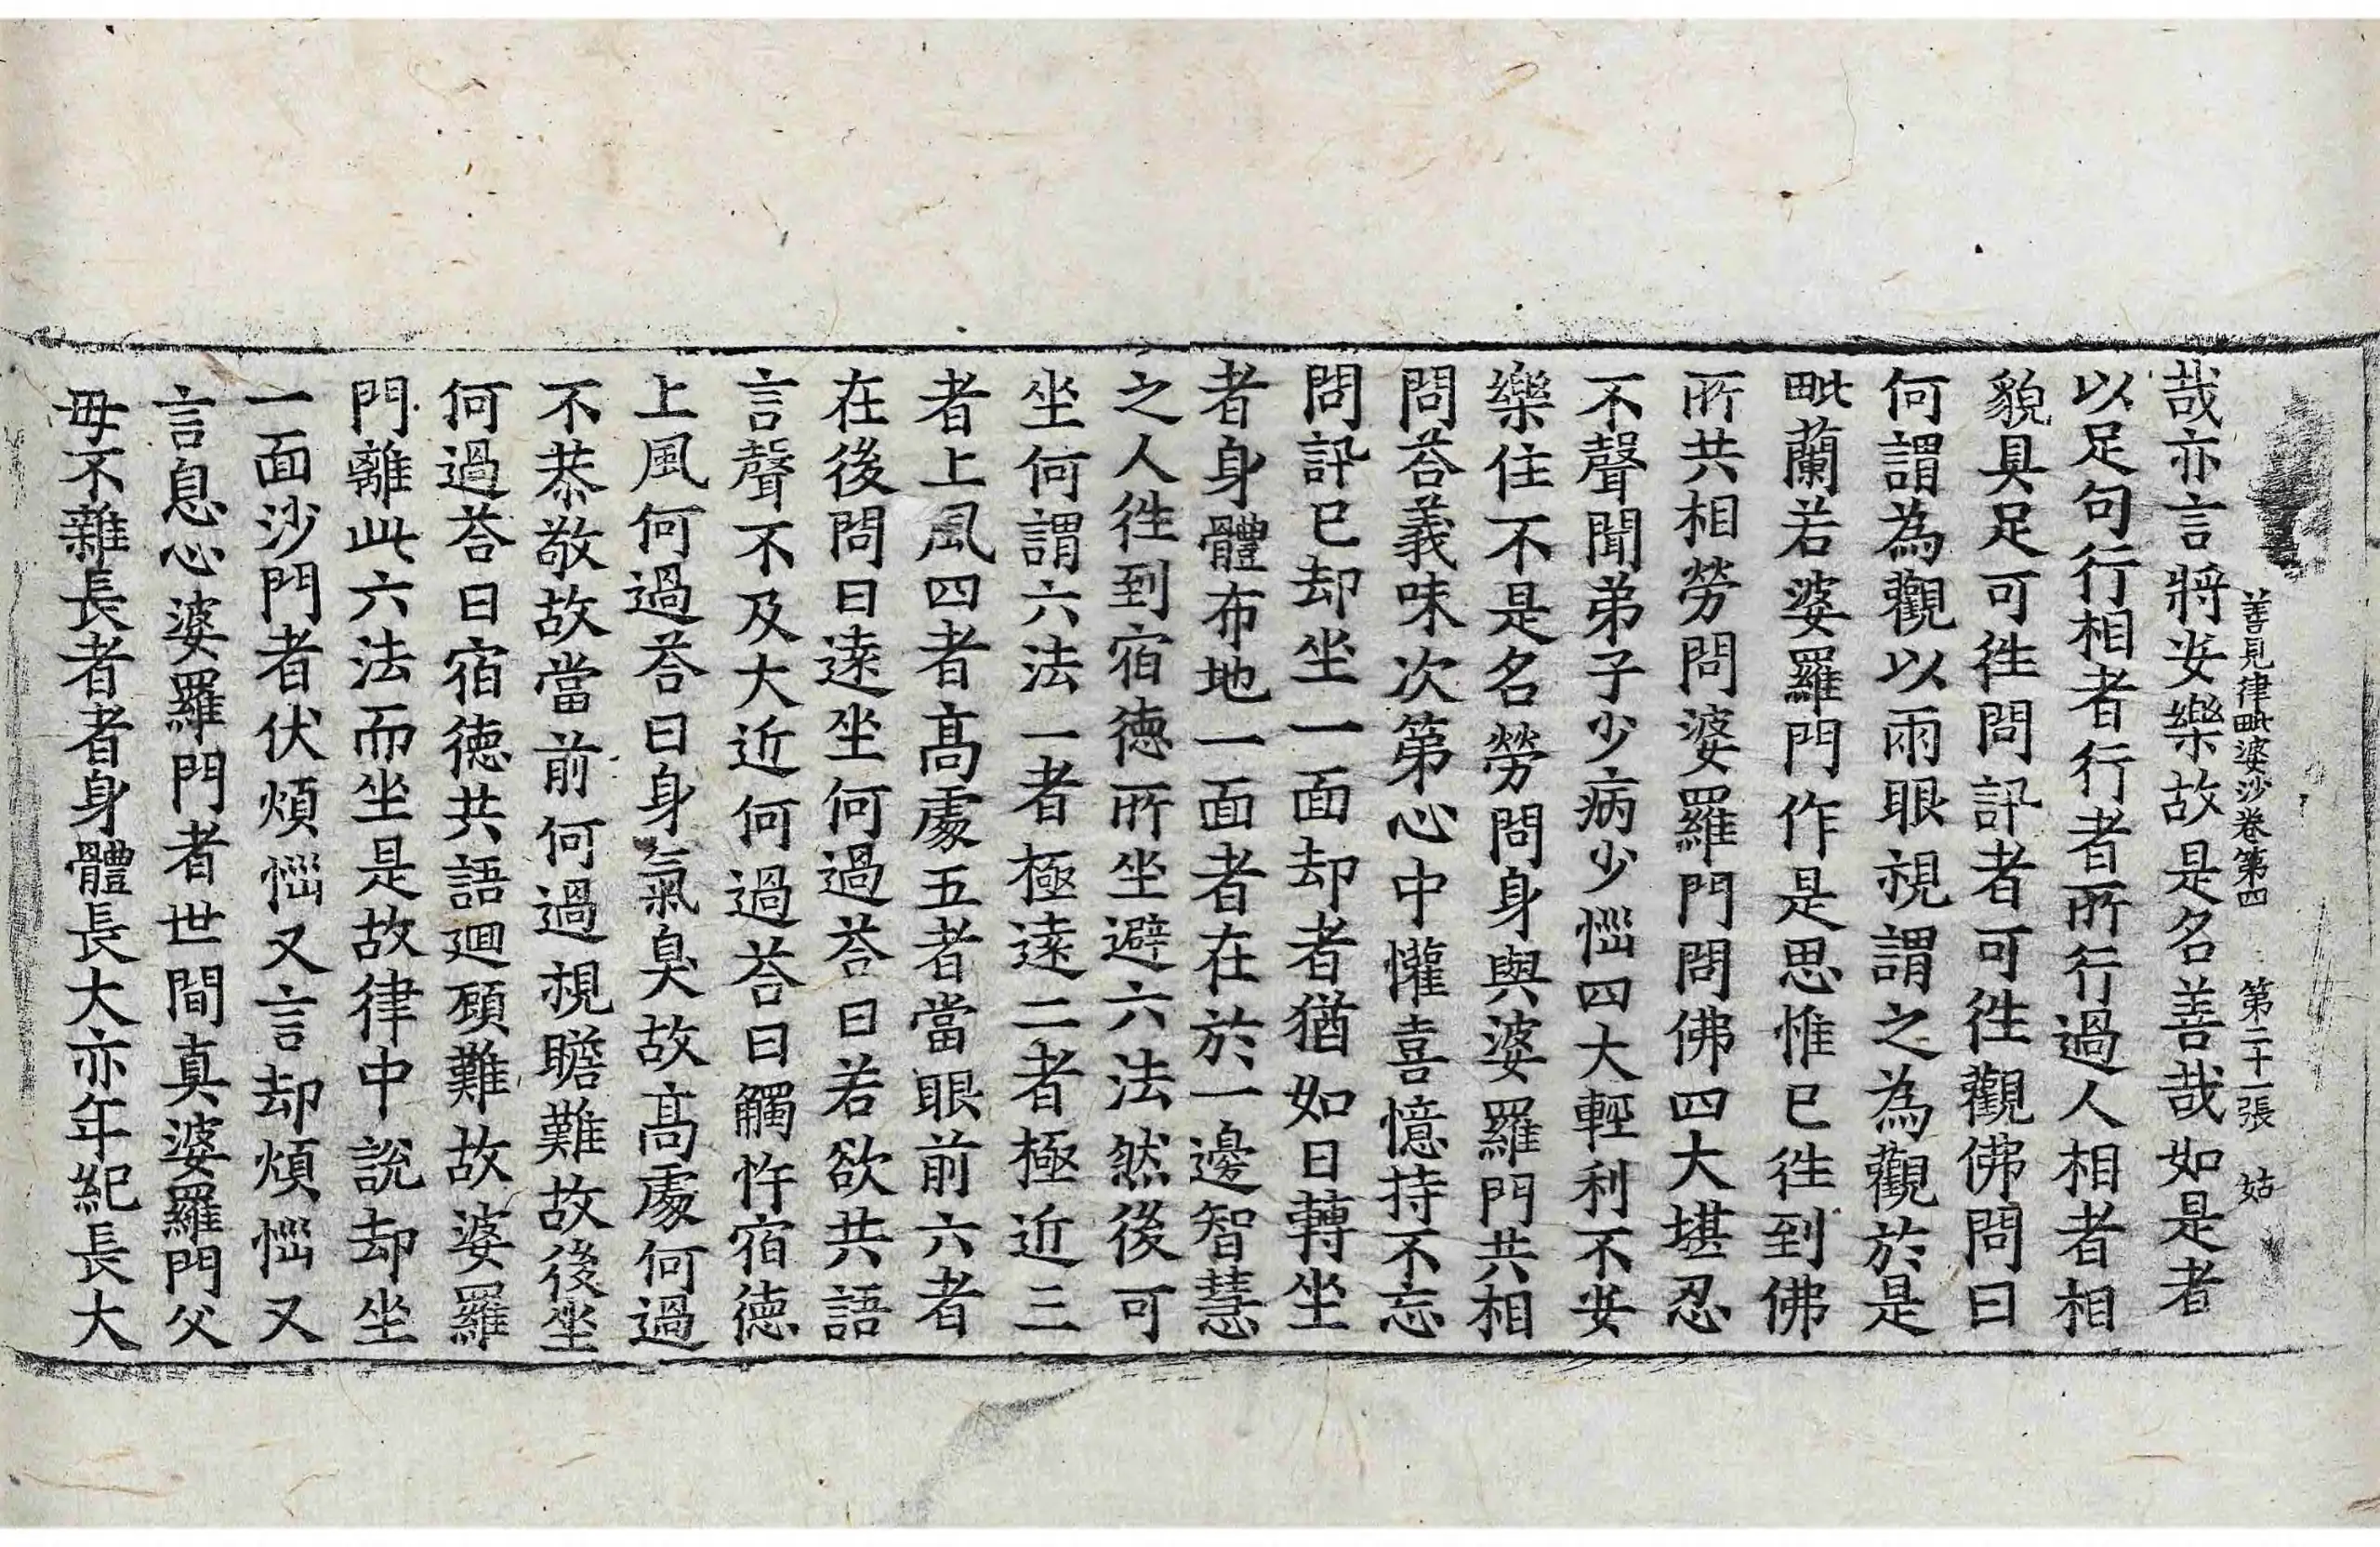 善見律毗婆沙卷第四　第二十一張　姑
哉亦言將安樂故是名善哉如是者
以足句行相者行者所行過人相者相
貌具足可徃問訊者可徃觀佛問曰
何謂為觀以兩眼視謂之為觀於是
毗蘭若婆羅門作是思惟已徃到佛
所共相勞問婆羅門問佛四大堪忍
不聲聞弟子少病少惱四大輕利不安
樂住不是名勞問身與婆羅門共相
問荅義味次第心中懽喜憶持不忘
問訊已却坐一面却者猶如日轉坐
者身體布地一面者在於一邊智慧
之人徃到宿德所坐避六法然後可
坐何謂六法一者極遠二者極近三
者上風四者髙處五者當眼前六者
在後問曰遠坐何過荅曰若欲共語
言聲不及大近何過荅曰觸忤宿德
上風何過荅曰身氣臭故髙處何過
不恭敬故當前何過視瞻難故後坐
何過荅曰宿德共語迴顧難故婆羅
門離此六法而坐是故律中說却坐
一面沙門者伏煩惱又言却煩惱又
言息心婆羅門者世間真婆羅門父
母不雜長者者身體長大亦年紀長大